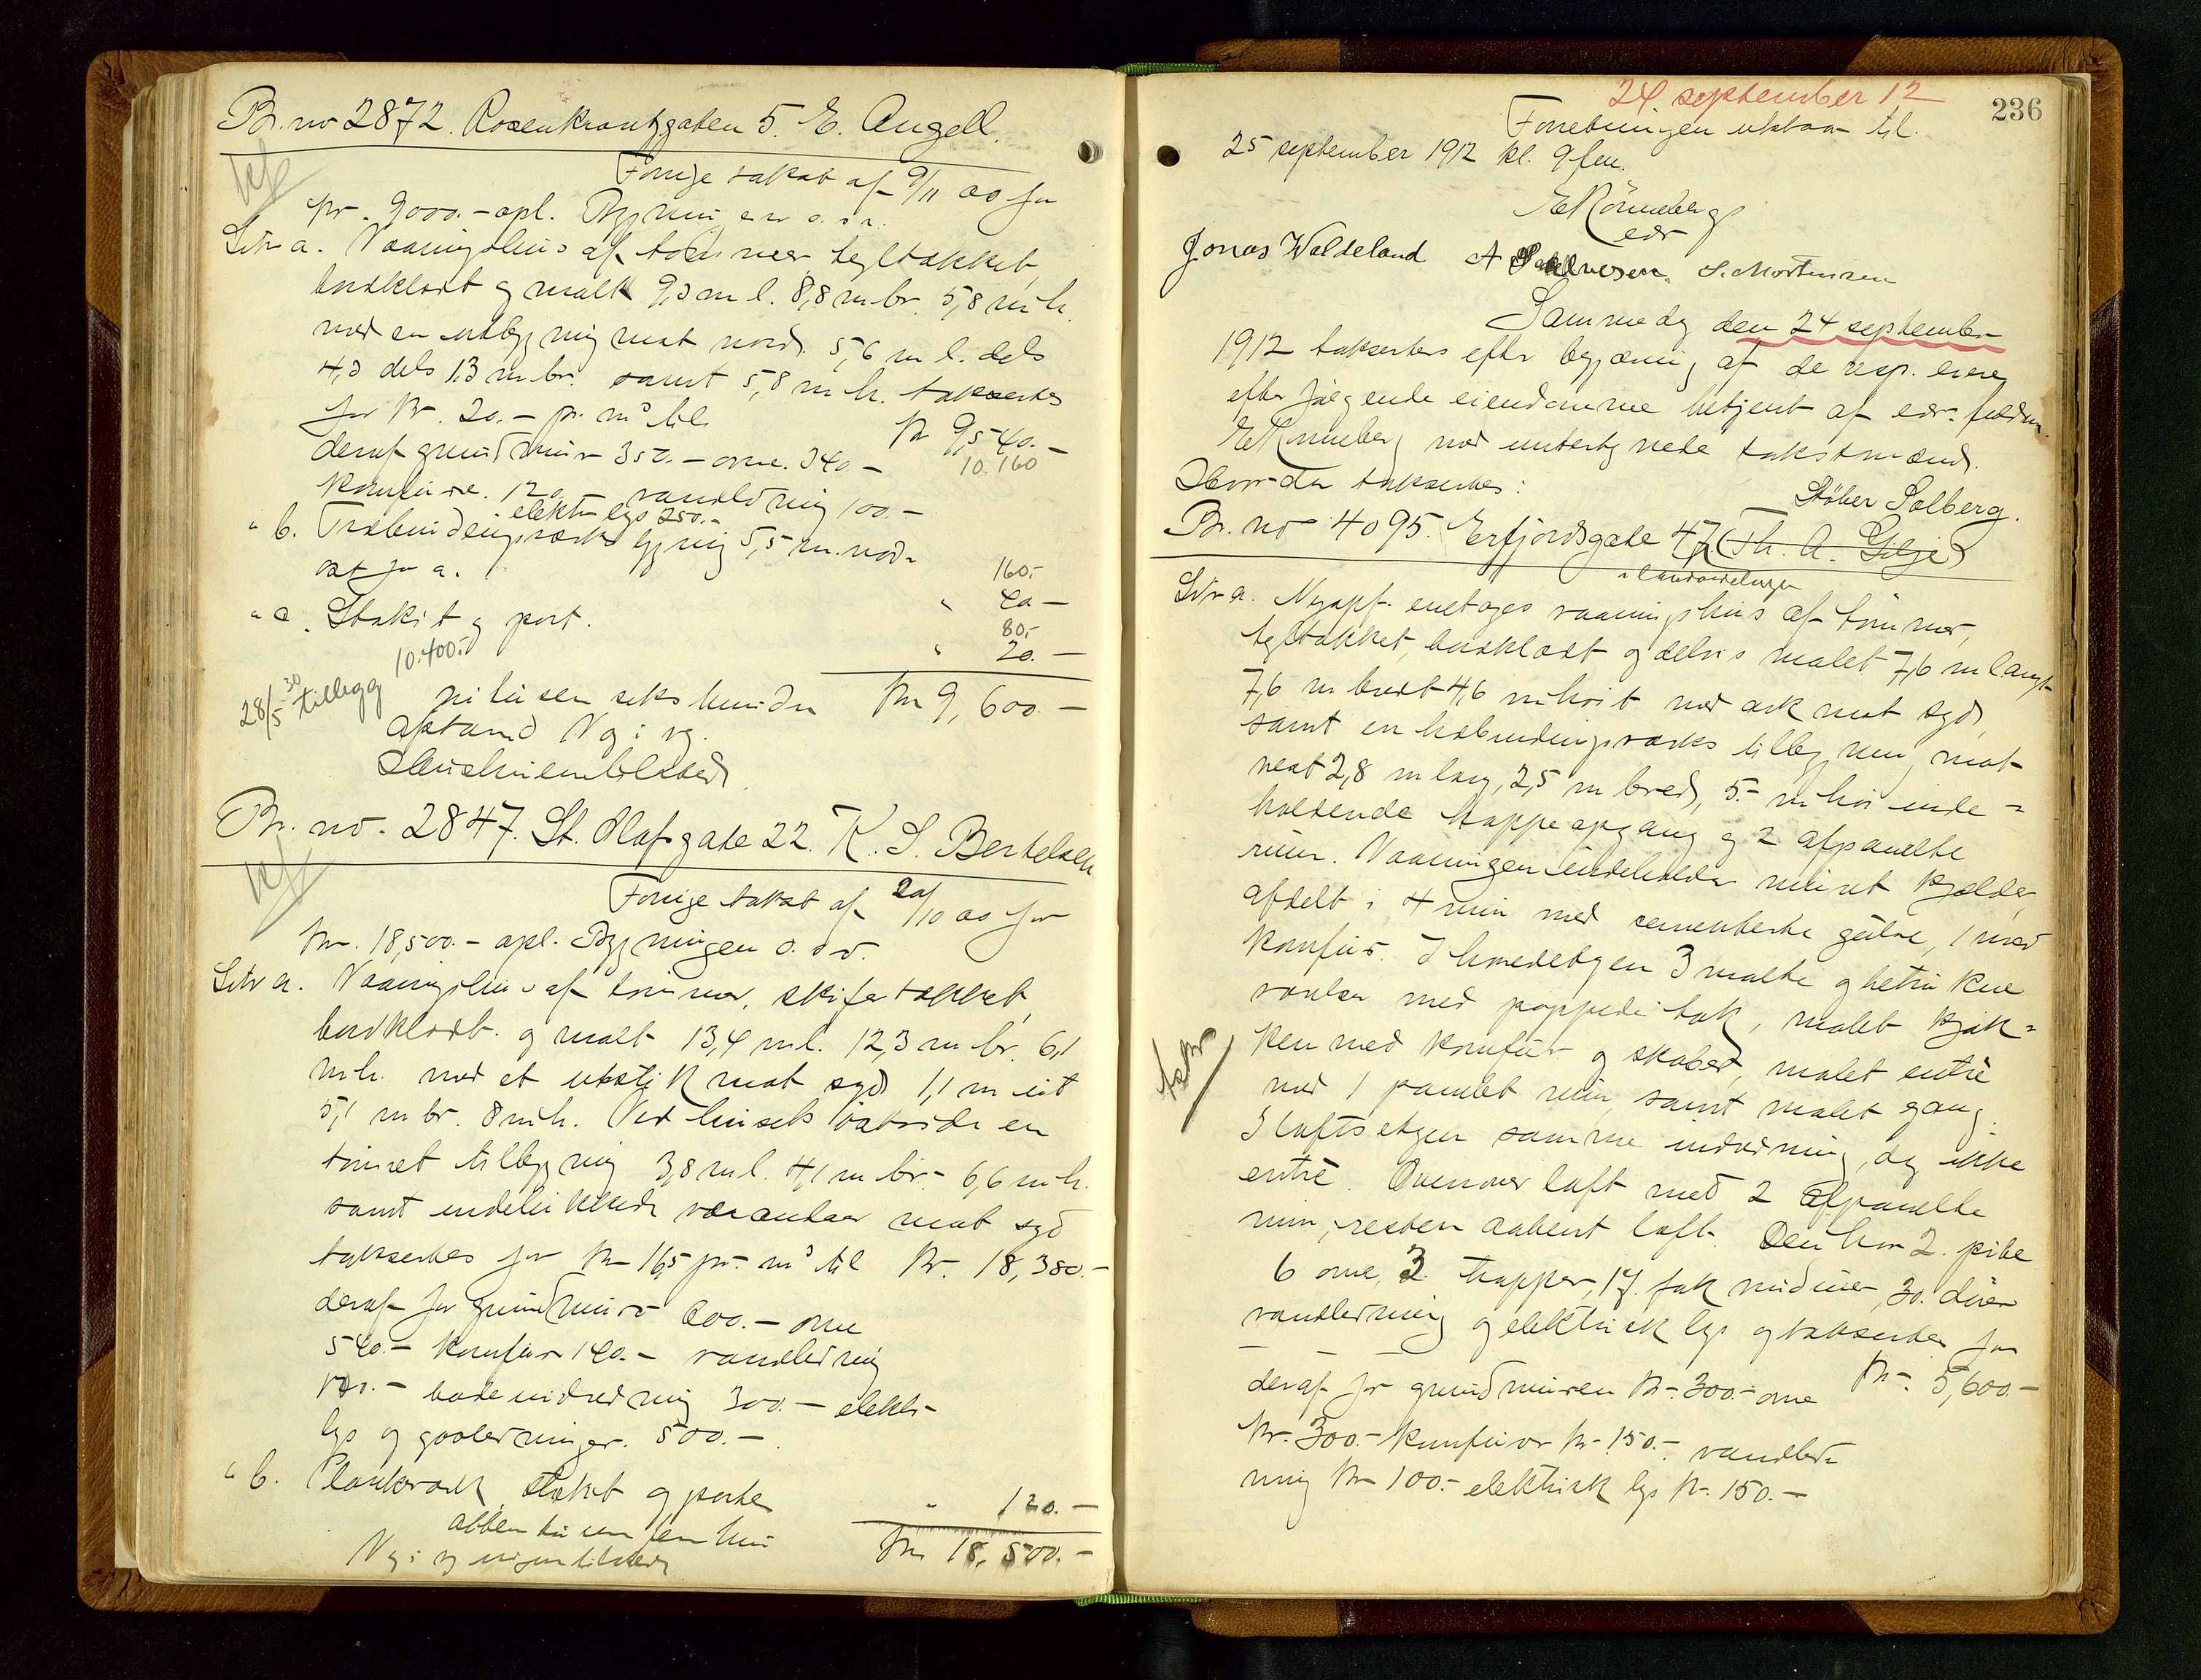 Br. no 2872. Rosenkrantzgaten 5. E. Angell.
Forrige takst af 9/11 00 for
kr. 9000.- opl. Bygningen o. s. v.
Litr a. Vaaningshus af tømmer tegltækket,
bordklædt og malt 9,3 m l. 8,8 m br. 5,8 m h.
med en utbygning mot nord. 5,6 m l. dels
4,3 dels 1,3 m br. samt 5,8 m h. takseres
for kr. 20.- pr. m³ til kr 9,540.-
deraf grundmur 350.- ovne. 340.- 10.160
komfure. 120 vandledning 100.-
elektr lys 250.-
" b. Træbindingsverks bygning 5,5 m. nord
øst for a. 160.-
" 40 -
" c. Stakit og port. 80.-
" 20. -
10.400.-
28/5 30 tillegg
ni tusen seks hundre kr 9,600. -
Afstand N og i vg.
Huseieren tilstede.
Br. no. 2847. St. Olafsgate 22. K. S. Bertelsen
Forrige takst af 20/10 00 for
kr. 18,500.- opl. Bygningen o. s. v.
Litr a. Vaaningshus af tømmer, skifertækket,
bordklædt. og malt 13,4 m l. 12,3 m br. 6,1
m h. med et utstik mot syd 1,1 m ut
5,1 m br. 8 m h. Ved husets østside en
tømret tilbygning 3,8 m l. 4,1 m br. 6,6 m h.
samt indelukkede verandaer mot syd
takseres for kr 16,5 pr. m³ til kr. 18,380.-
deraf for grundmur 600.- ovne
540.- komfur 140.- vandledning
badeindredning 300.- elektr
lys og gasledninger. 500.-
" b. Plankeværk, stakit og porte " 120.-
atten tusen fem hun kr 18,500.-
N og i vg eieren tilstede
24 september 12
236
Forretningen utstaar til
25 september 1912 kl. 9 fm.
E Rønneberg
edr
Jonas Waldeland A Salvesen. S. Mortensen
Samme dag den 24 september
1912 taksertes efter begjæring af de resp. eiere
efter følgende eiendomme betjent af edr. fuldm.
E Rønneberg med undertegnede takstmænd.
Hvor da takseres:
Støber Solberg.
Br. no 4095. Erfjordsgate 47 (Th. A. Gilje)
i landavdelingen
Litr a. Nyopf. enetages vaaningshus af tømmer,
tegltækket, bordklædt og delvis malet 7,6 m langt
7,6 m bredt 4,6 m høit med ark mot syd,
samt en træbindingsverks tilbygning mot
vest 2,8 m lang, 2,5 m bred, 5.- m høi inde=
holdende trappeopgang og 2 afpanelte
rum. Vaaningen indeholder muret kjelder,
afdelt i 4 rum med cementerte gulve, 1 med
komfur. I hovedetagen 3 malte og betrukne
værelser med pappede tak, malet kjøk=
ken med komfur og skabed, malet entré
med 1 panelet rum, samt malet gang.
I loftsetagen samme indredning, dog ikke
entré. Ovenover loft med 2 afpanelte
rum, resten aabent loft. Den har 2. pibe
6 ovne, 3 trapper, 17. fak vinduer, 30. døre
vandledning og elektrisk lys og takseres for
kr. 5,600.-
deraf for grundmuren kr. 300.- ovne
kr. 300.- komfurer kr. 150.- vandled=
ning kr 100.- elektrisk lys kr. 150.-